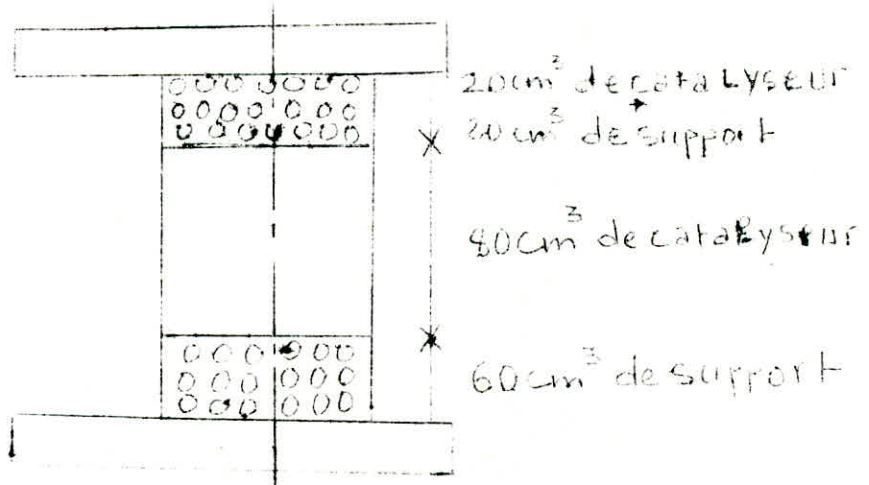 20cm³ de catalyseur
20cm³ de support
80cm³ de catalyseur
60cm³ de support